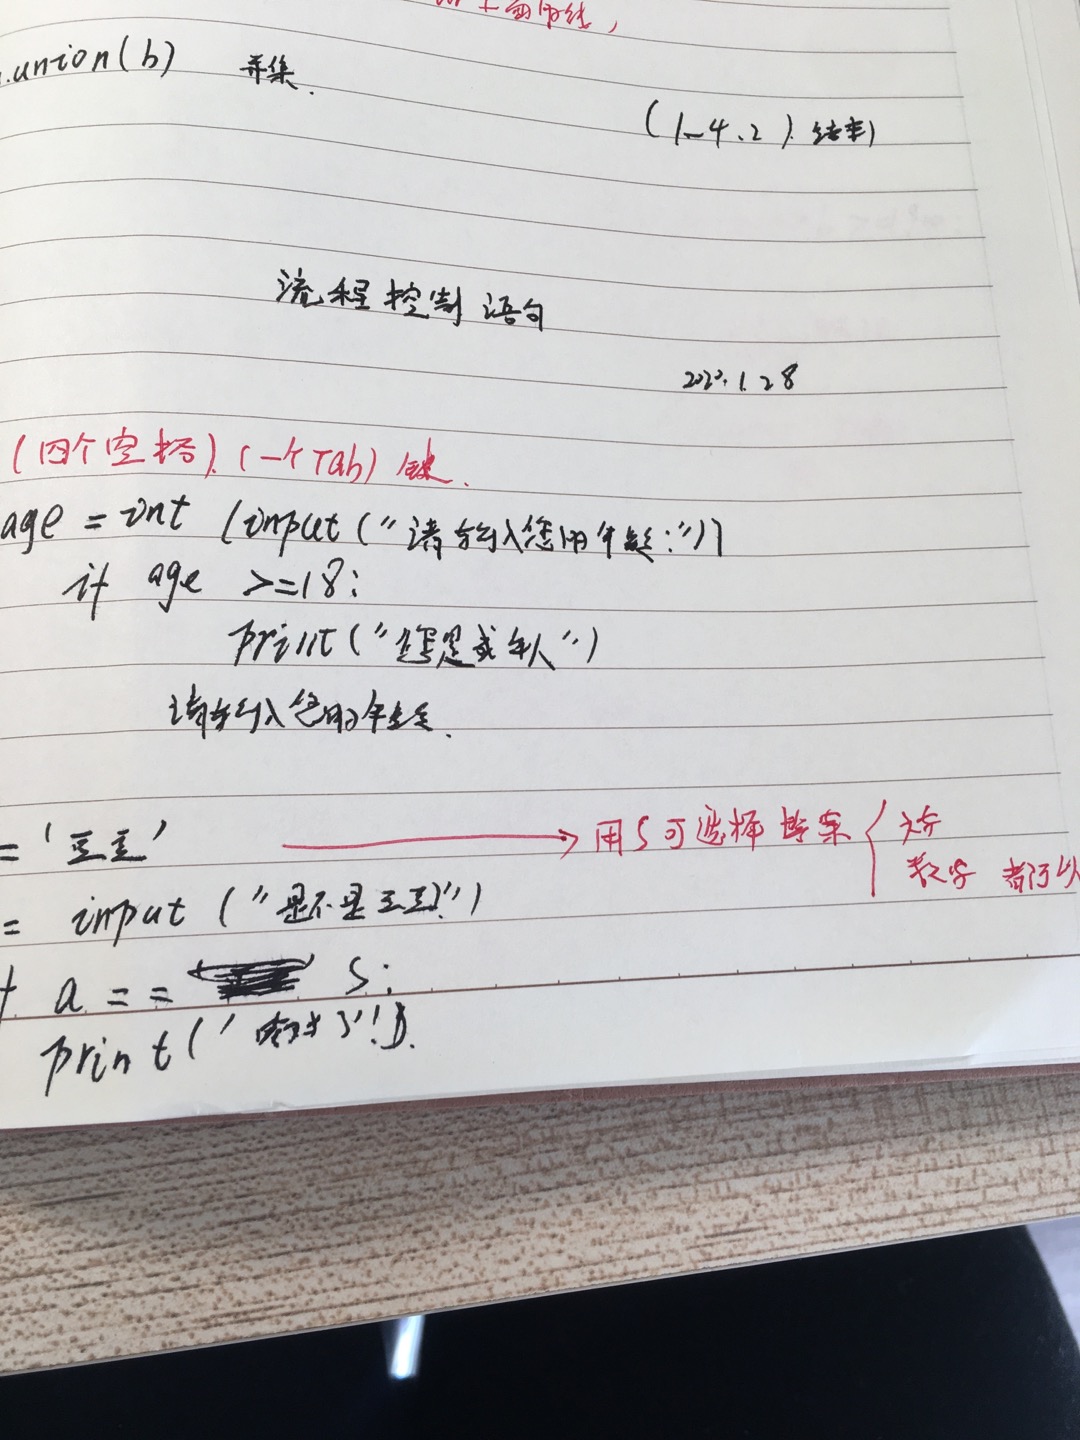 .union(b) 并集.
(1-4.2).结束)
流程控制语句
2020.1.28
(四个空格).(一个Tab)键.
age = int (input("请输入您的年龄:"))
if age >=18:
print("您是成年人")
请输入您的年龄.
= '豆豆' → 用S可选择 答案 { 文字
数字 都可以
= input ("是不是豆豆?")
a == S:
print('!').